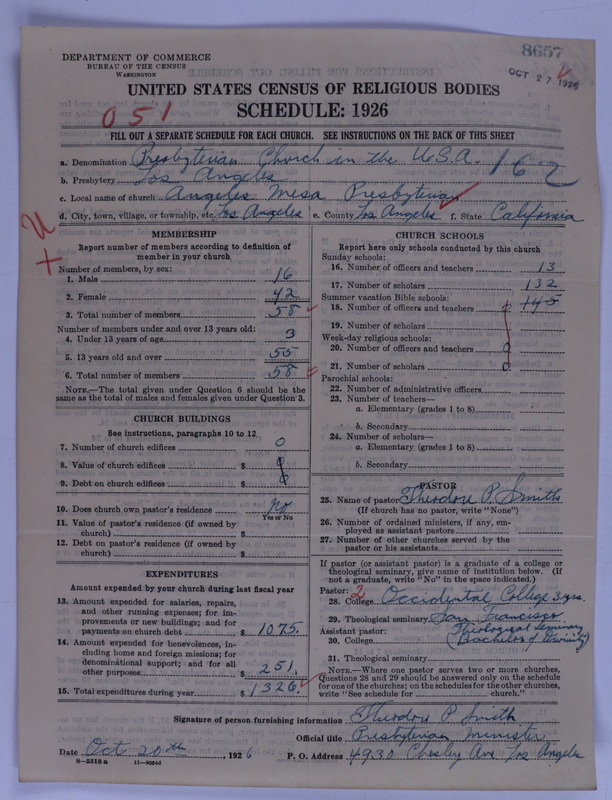 8657
DEPARTMENT OF COMMERCE
BUREAU OF THE CENSUS
WASHINGTON
OCT 27 1926
UNITED STATES CENSUS OF RELIGIOUS BODIES
SCHEDULE: 1926
051
FILL OUT A SEPARATE SCHEDULE FOR EACH CHURCH. SEE INSTRUCTIONS ON THE BACK OF THIS SHEET
a. Denomination Presbyterian Church in the U.S.A. 162
b. Presbytery Los Angeles
c. Local name of church Angeles Mesa Presbyterian
d. City, town, village, or township, etc. Los Angeles e. County Los Angeles f. State California
MEMBERSHIP
Report number of members according to definition of
member in your church
Number of members, by sex:
1. Male 16
2. Female 42
3. Total number of members 58
Number of members under and over 13 years old:
4. Under 13 years of age 3
5. 13 years old and over 55
6. Total number of members 58
NOTE.—The total given under Question 6 should be the
same as the total of males and females given under Question 3.
CHURCH BUILDINGS
See instructions, paragraphs 10 to 12
7. Number of church edifices 0
8. Value of church edifices $ 0
9. Debt on church edifices $ 0
10. Does church own pastor's residence No
Yes or No
11. Value of pastor's residence (if owned by
church) $
12. Debt on pastor's residence (if owned by
church) $
EXPENDITURES
Amount expended by your church during last fiscal year
13. Amount expended for salaries, repairs,
and other running expenses; for im-
provements or new buildings; and for
payments on church debt $ 1075.
14. Amount expended for benevolences, in-
cluding home and foreign missions; for
denominational support; and for all
other purposes $ 251.
15. Total expenditures during year $ 1326.
CHURCH SCHOOLS
Report here only schools conducted by this church
Sunday schools:
16. Number of officers and teachers 13
17. Number of scholars 132
Summer vacation Bible schools: 145
18. Number of officers and teachers 0
19. Number of scholars
Week-day religious schools:
20. Number of officers and teachers 0
21. Number of scholars 0
Parochial schools:
22. Number of administrative officers
23. Number of teachers—
a. Elementary (grades 1 to 8)
b. Secondary
24. Number of scholars—
a. Elementary (grades 1 to 8)
b. Secondary
PASTOR
25. Name of pastor Theodore P. Smith
(If church has no pastor, write "None")
26. Number of ordained ministers, if any, em-
ployed as assistant pastors
27. Number of other churches served by the
pastor or his assistants
If pastor (or assistant pastor) is a graduate of a college or
theological seminary, give name of institution below. (If
not a graduate, write "No" in the space indicated.)
Pastor: 2
28. College Occidental College 3 yrs.
29. Theological seminary San Francisco
Assistant pastor: Theological Seminary
30. College (Bachelor of Divinity)
31. Theological seminary
NOTE.—Where one pastor serves two or more churches,
Questions 28 and 29 should be answered only on the schedule
for one of the churches; on the schedules for the other churches,
write "See schedule for church."
Signature of person furnishing information Theodore P. Smith
Official title Presbyterian Minister
Date Oct. 20th, 1926 P. O. Address 4930 Chesley Ave Los Angeles
8—5518a 11—9084d